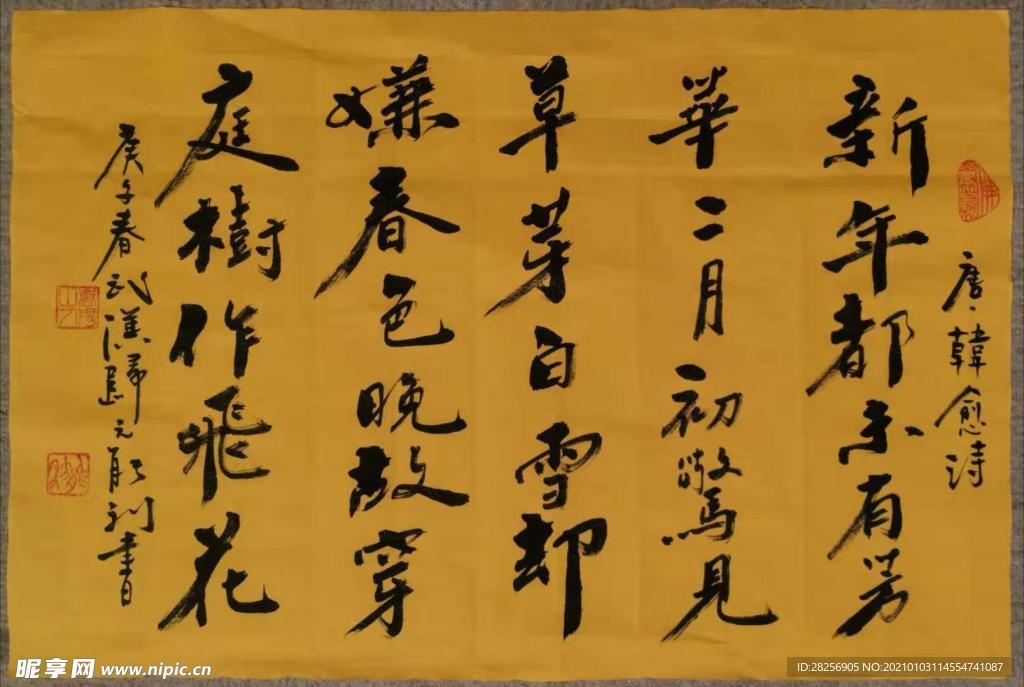 唐·韓愈诗
新年都未有芳
華二月初驚見
草芽白雪却
嫌春色晚故穿
庭樹作飛花
庚子春武漢歸元能利書
昵享网 www.nipic.cn
ID:28256905 NO:20210103114554741087